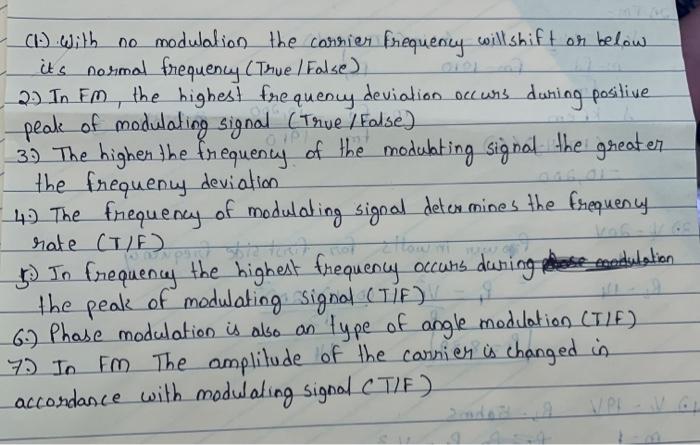 (1.) With no modulation the carrier frequency will shift or below
it's normal frequency (True/False)
2.) In FM, the highest frequency deviation occurs during positive
peak of modulating signal (True/False)
3.) The higher the frequency of the modulating signal the greater
the frequency deviation
4.) The frequency of modulating signal determines the frequency
rate (T/F)
5.) In frequency the highest frequency occurs during
the peak of modulating signal (T/F)
6.) Phase modulation is also an type of angle modulation (T/F)
7.) In FM The amplitude of the carrier is changed in
accordance with modulating signal (T/F)